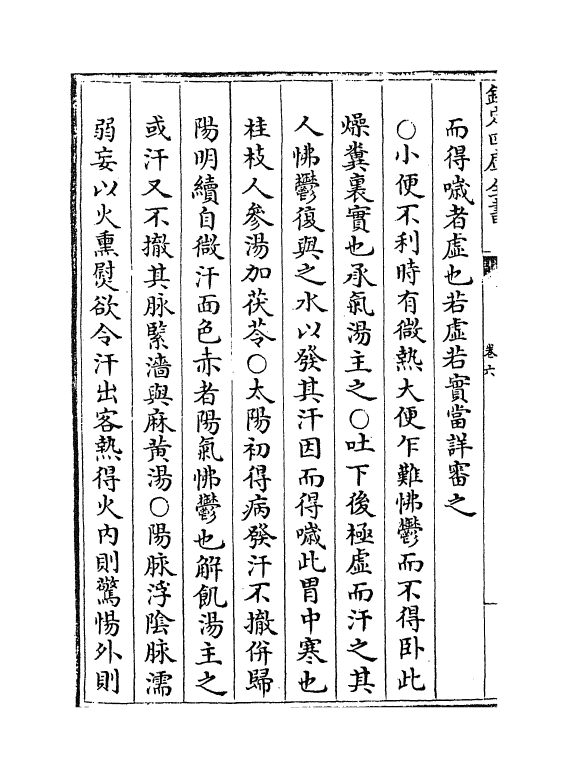 欽定四庫全書
卷六
而得噦者虛也若虛若實當詳審之
○小便不利時有微熱大便乍難怫鬱而不得卧此
燥糞裏實也承氣湯主之○吐下後極虛而汗之其
人怫鬱復與之水以發其汗因而得噦此胃中寒也
桂枝人參湯加茯苓○太陽初得病發汗不撤併歸
陽明續自微汗面色赤者陽氣怫鬱也解飢湯主之
或汗又不撤其脉緊濇與麻黄湯○陽脉浮陰脉濡
弱妄以火熏熨欲令汗出客熱得火内則驚惕外則